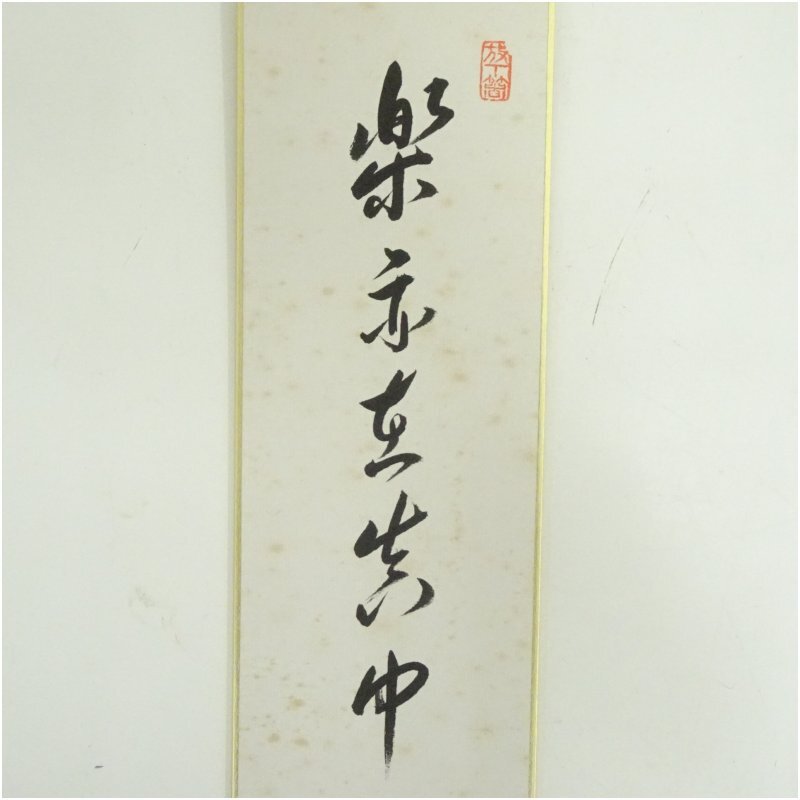 楽亦在其中